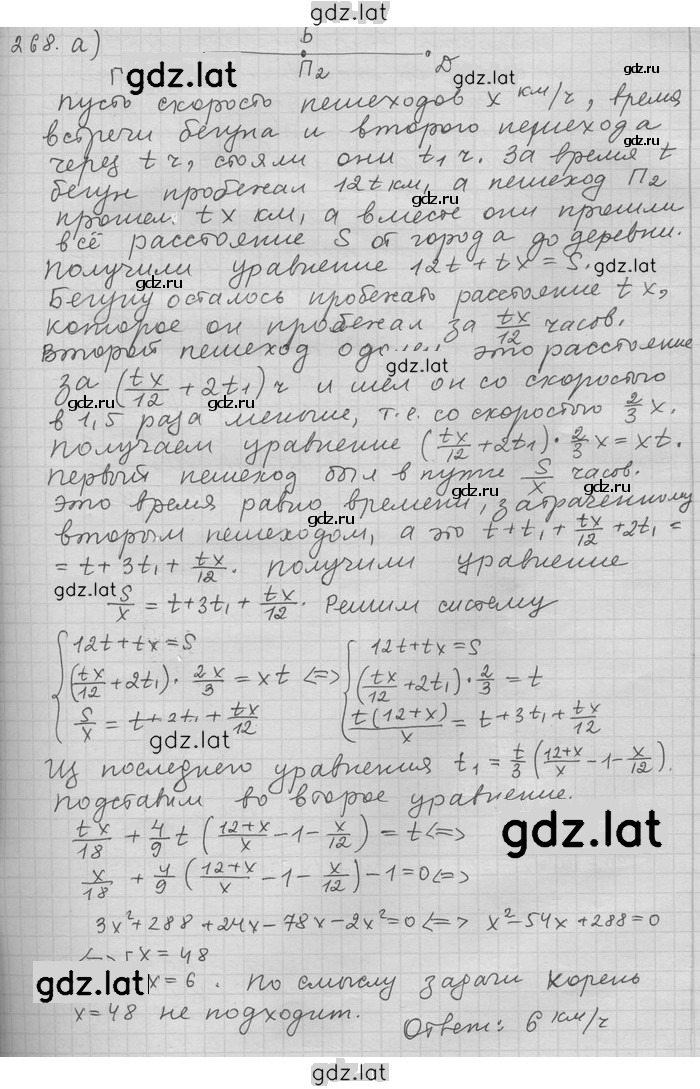 gdz.lat
268. а) В
П₂ Д
gdz.lat gdz.lat
gdz.ru
пусть скорость пешеходов x км/ч, время
встречи бегуна и второго пешехода
через t ч, стояли они t₁ ч. За время t
бегун пробежал 12t км, а пешеход П₂
gdz.ru
прошел tx км, а вместе они прошли
всё расстояние S от города до деревни.
получили уравнение 12t + tx = S.
gdz.ru
Бегуну осталось пробежать расстояние tx,
которое он пробежал за tx/12 часов.
Второй пешеход это расстояние
gdz.lat
за (tx/12 + 2t₁) ч и шел он со скоростью
в 1,5 раза меньше, т.е. со скоростью 2/3 x.
получаем уравнение (tx/12 + 2t₁) · 2/3 x = xt.
первый пешеход был в пути S/x часов.
gdz.ru
это время равно времени, затраченному
вторым пешеходом, а это t + t₁ + tx/12 + 2t₁ =
gdz.ru
= t + 3t₁ + tx/12. получили уравнение
gdz.lat
S/x = t + 3t₁ + tx/12. Решим систему
{ 12t + tx = S { 12t + tx = S
(tx/12 + 2t₁) · 2x/3 = xt <=> (tx/12 + 2t₁) · 2/3 = t
S/x = t + 2t₁ + tx/12 t(12+x)/x = t + 3t₁ + tx/12
gdz.lat
Из последнего уравнения t₁ = t/3 (12+x/x − 1 − x/12).
подставим во второе уравнение.
tx/18 + 4/9 t (12+x/x − 1 − x/12) = t <=>
gdz.lat
x/18 + 4/9 (12+x/x − 1 − x/12) − 1 = 0 <=>
3x² + 288 + 24x − 78x − 2x² = 0 <=> x² − 54x + 288 = 0
x = 48
gdz.lat
x = 6. по смыслу задачи корень
x = 48 не подходит.
Ответ: 6 км/ч
gdz.lat